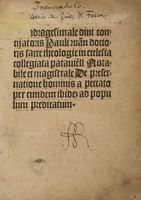 Incunabulo
adragesimale diui con
cionatoris Pauli wann docto
ris sacre theologie in ecclesia
collegiata patauien̄ Nota
bile et magistrale De preser
uatione hominis a peccato
per eundem ibidē ad popu
lum predicatum